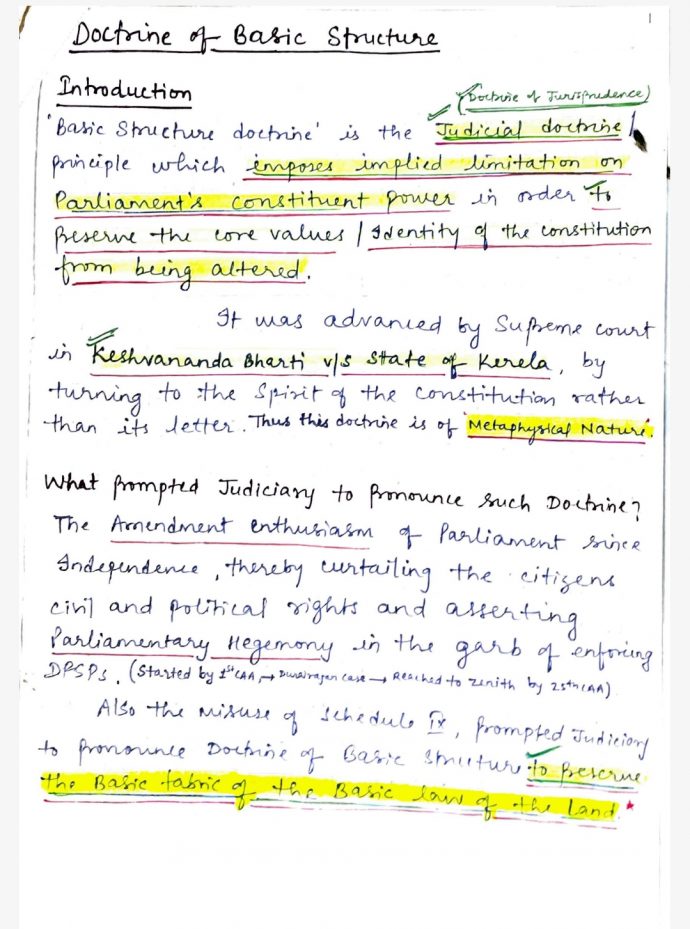 1
Doctrine of Basic Structure
Introduction
(Doctrine of Jurisprudence)
'Basic Structure doctrine' is the Judicial doctrine/
principle which imposes implied limitation on
Parliament's constituent power in order to
Preserve the core values / Identity of the constitution
from being altered.
It was advanced by Supreme court
in Keshvananda Bharti v/s State of Kerela, by
turning to the Spirit of the constitution rather
than its letter. Thus this doctrine is of 'Metaphysical Nature'.
What Prompted Judiciary to Pronounce such Doctrine?
The Amendment enthusiasm of Parliament since
Independence, thereby curtailing the citizens
civil and political rights and asserting
Parliamentary Hegemony in the garb of enforcing
DPSPs. (Started by 1st CAA → Dorairajan case → Reached to zenith by 25th CAA)
Also the misuse of Schedule IX, Prompted Judiciary
to pronounce Doctrine of Basic structure to Preserve
the Basic fabric of the Basic law of the land.*